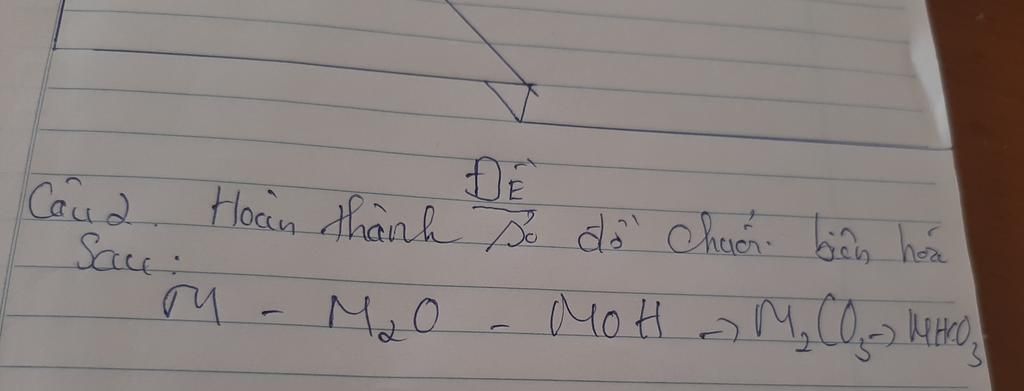 ĐỀ
Câu 2. Hoàn thành sơ đồ chuỗi biến hóa
Sau:
M - M₂O - MOH → M₂CO₃ → MHCO₃